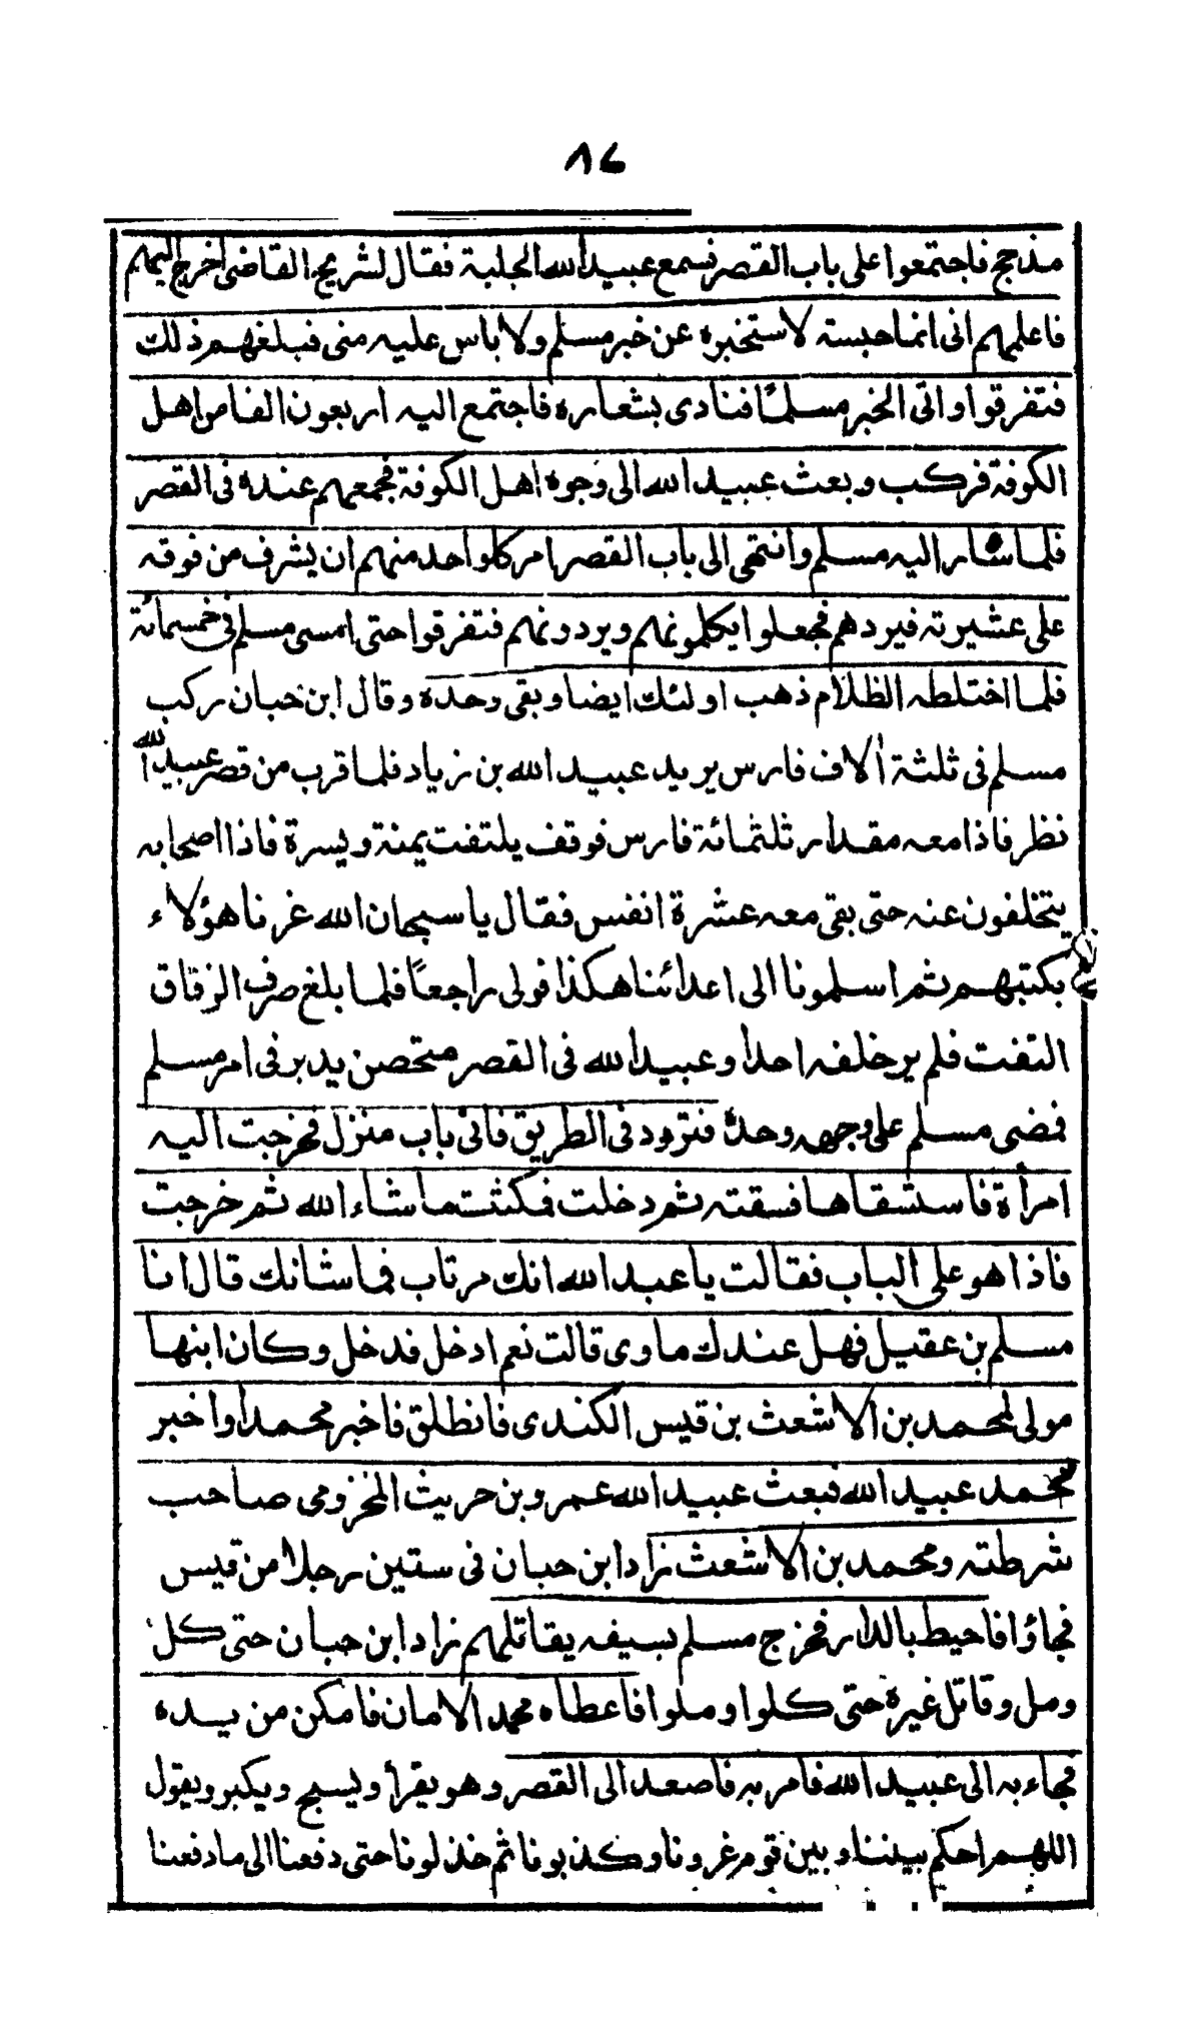 ٨٤
مذحج فاجتمعوا على باب القصر فسمع عبيد الله الجلبة فقال لشريح القاضى اخرج اليهم
فاعلمهم انى انما حبسته لاستخبره عن خبر مسلم ولا باس عليه منى فبلغهم ذلك
فتفرقوا واتى الخبر مسلمًا فنادى بشعاره فاجتمع اليه اربعون الفا من اهل
الكوفة فركب وبعث عبيد الله الى وجوه اهل الكوفة فجمعهم عنده فى القصر
فلما سار اليه مسلم وانتهى الى باب القصر امر كل واحد منهم ان يشرف من فوقه
على عشيرته فيردهم فجعلوا يكلمونهم ويردونهم فتفرقوا حتى امسى مسلم فى خمسمائة
فلما اختلطه الظلام ذهب اولئك ايضا وبقى وحده وقال ابن حبان ركب
مسلم فى ثلثة الاف فارس يريد عبيد الله بن زياد فلما قرب من قصر عبيد الله
نظر فاذا معه مقدار ثلثمائة فارس فوقف يلتفت يمنة ويسرة فاذا اصحابه
يتخلفون عنه حتى بقى معه عشرة انفس فقال يا سبحان الله غرنا هؤلاء
بكتبهم ثم اسلمونا الى اعدائنا هكذا فولى راجعاً فلما بلغ طرف الزقاق
التفت فلم ير خلفه احدا وعبيد الله فى القصر متحصن يدبر فى امر مسلم
فمضى مسلم على وجهه وحده فتردد فى الطريق فاتى باب منزل فخرجت اليه
امرأة فاستسقاها فسقته ثم دخلت فمكثت ما شاء الله ثم خرجت
فاذا هو على الباب فقالت يا عبد الله انك مرتاب فما شانك قال انا
مسلم بن عقيل فهل عندك ماوى قالت نعم ادخل فدخل وكان ابنها
مولى لمحمد بن الاشعث بن قيس الكندى فانطلق فاخبر محمدا واخبر
محمد عبيد الله فبعث عبيد الله عمرو بن حريث المخزومى صاحب
شرطته ومحمد بن الاشعث زاد ابن حبان فى ستين رجلا من قيس
فجاؤا فاحيط بالدار فخرج مسلم بسيفه يقاتلهم زاد ابن حبان حتى كل
ومل وقاتل غيرة حتى كلوا وملوا فاعطاه محمد الامان فامكن من يده
فجاء به الى عبيد الله فامر به فاصعد الى القصر وهو يقرأ ويسبح ويكبر ويقول
اللهم احكم بيننا وبين قوم غرونا وكذبونا ثم خذلونا حتى دفعنا الى ما دفعنا